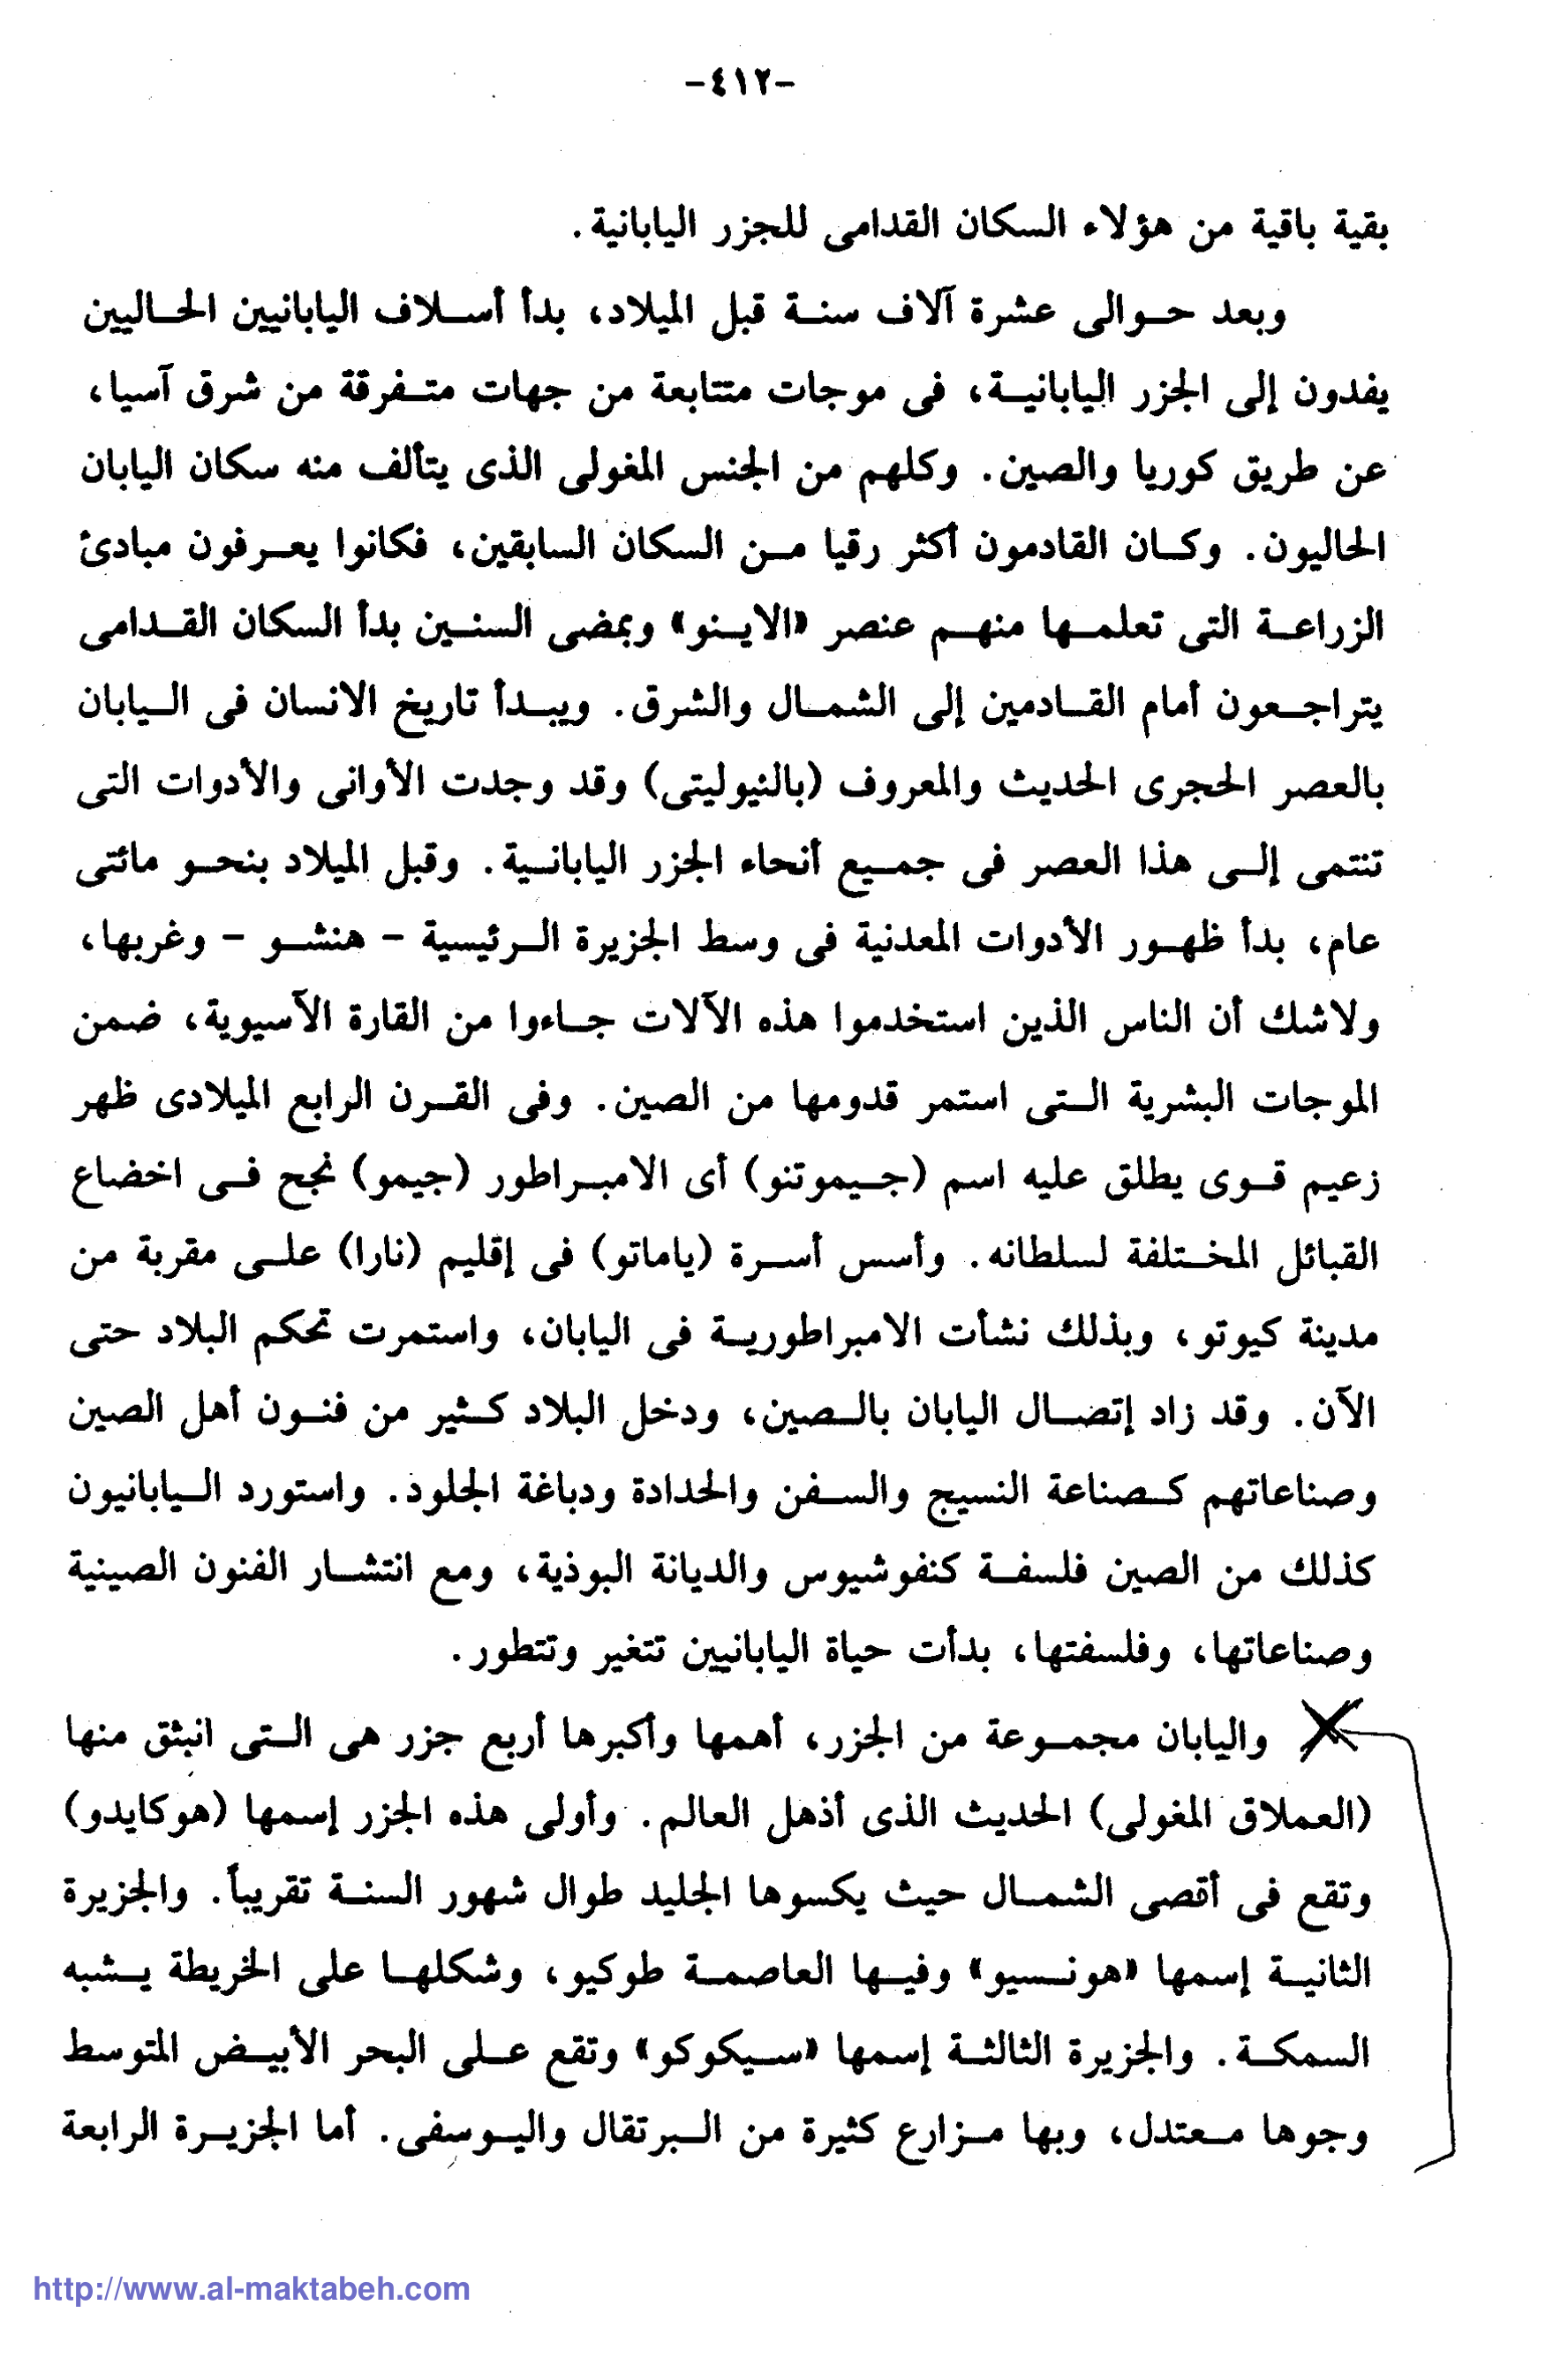 -٤١٢-
بقية باقية من هؤلاء السكان القدامى للجزر اليابانية.
وبعد حوالى عشرة آلاف سنة قبل الميلاد، بدأ أسلاف اليابانيين الحاليين
يفدون إلى الجزر اليابانية، فى موجات متتابعة من جهات متفرقة من شرق آسيا،
عن طريق كوريا والصين. وكلهم من الجنس المغولى الذى يتألف منه سكان اليابان
الحاليون. وكان القادمون أكثر رقيا من السكان السابقين، فكانوا يعرفون مبادئ
الزراعة التى تعلمها منهم عنصر «الاينو» وبمضى السنين بدأ السكان القدامى
يتراجعون أمام القادمين إلى الشمال والشرق. ويبدأ تاريخ الانسان فى اليابان
بالعصر الحجرى الحديث والمعروف (بالنيوليتى) وقد وجدت الأوانى والأدوات التى
تنتمى إلى هذا العصر فى جميع أنحاء الجزر اليابانية. وقبل الميلاد بنحو مائتى
عام، بدأ ظهور الأدوات المعدنية فى وسط الجزيرة الرئيسية - هنشو - وغربها،
ولاشك أن الناس الذين استخدموا هذه الآلات جاءوا من القارة الآسيوية، ضمن
الموجات البشرية التى استمر قدومها من الصين. وفى القرن الرابع الميلادى ظهر
زعيم قوى يطلق عليه اسم (جيموتنو) أى الامبراطور (جيمو) نجح فى اخضاع
القبائل المختلفة لسلطانه. وأسس أسرة (ياماتو) فى إقليم (نارا) على مقربة من
مدينة كيوتو، وبذلك نشأت الامبراطورية فى اليابان، واستمرت تحكم البلاد حتى
الآن. وقد زاد إتصال اليابان بالصين، ودخل البلاد كثير من فنون أهل الصين
وصناعاتهم كصناعة النسيج والسفن والحدادة ودباغة الجلود. واستورد اليابانيون
كذلك من الصين فلسفة كنفوشيوس والديانة البوذية، ومع انتشار الفنون الصينية
وصناعاتها، وفلسفتها، بدأت حياة اليابانيين تتغير وتتطور.
واليابان مجموعة من الجزر، أهمها وأكبرها أربع جزر هى التى انبثق منها
(العملاق المغولى) الحديث الذى أذهل العالم. وأولى هذه الجزر إسمها (هوكايدو)
وتقع فى أقصى الشمال حيث يكسوها الجليد طوال شهور السنة تقريباً. والجزيرة
الثانية إسمها «هونسيو» وفيها العاصمة طوكيو، وشكلها على الخريطة يشبه
السمكة. والجزيرة الثالثة إسمها «سيكوكو» وتقع على البحر الأبيض المتوسط
وجوها معتدل، وبها مزارع كثيرة من البرتقال واليوسفى. أما الجزيرة الرابعة
http://www.al-maktabeh.com